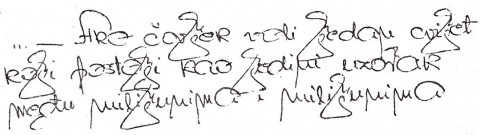 ... — Ako čovjek voli jedan cvijet
koji postoji kao jedini uzorak
među milijunima i milijunima